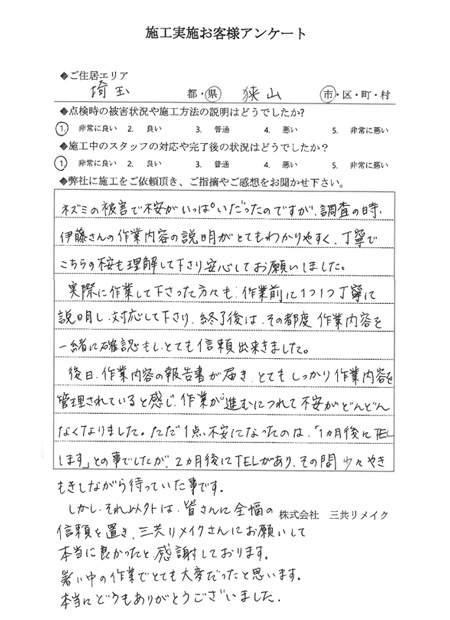 施工実施お客様アンケート
◆ご住居エリア
埼玉 都・県 狭山 市・区・町・村
◆点検時の被害状況や施工方法の説明はどうでしたか?
1. 非常に良い 2. 良い 3. 普通 4. 悪い 5. 非常に悪い
◆施工中のスタッフの対応や完了後の状況はどうでしたか?
1. 非常に良い 2. 良い 3. 普通 4. 悪い 5. 非常に悪い
◆弊社に施工をご依頼頂き、ご指摘やご感想をお聞かせ下さい。
ネズミの被害で不安がいっぱいだったのですが、調査の時、
伊藤さんの作業内容の説明がとてもわかりやすく、丁寧で
こちらの不安も理解して下さり安心してお願いしました。
実際に作業して下さった方々も、作業前に1つ1つ丁寧に
説明し、対応して下さり、終了後は、その都度 作業内容を
一緒に確認もし、とても信頼出来きました。
後日、作業内容の報告書が届き、とてもしっかり作業内容を
管理されていると感じ、作業が進むにつれて不安がどんどん
なくなりました。ただ1点、不安になったのは、「1ヵ月後にTEL
します」との事でしたが、2ヵ月後にTELがあり、その間少々やき
もきしながら待っていた事です。
しかし、それ以外は、皆さんに全幅の 株式会社 三共リメイク
信頼を置き、三共リメイクさんにお願いして
本当に良かったと感謝しております。
暑い中の作業でとても大変だったと思います。
本当にどうもありがとうございました。